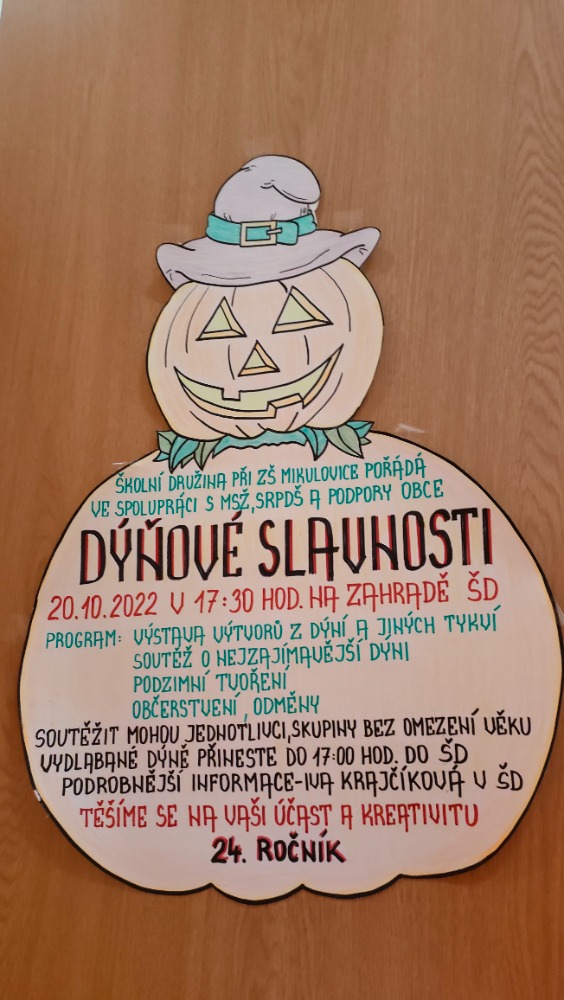 ŠKOLNÍ DRUŽINA PŘI ZŠ MIKULOVICE POŘÁDÁ
VE SPOLUPRÁCI S MSŽ, SRPDŠ A PODPORY OBCE
DÝŇOVÉ SLAVNOSTI
20.10.2022 V 17:30 HOD. NA ZAHRADĚ ŠD
PROGRAM: VÝSTAVA VÝTVORŮ Z DÝNÍ A JINÝCH TYKVÍ
SOUTĚŽ O NEJZAJÍMAVĚJŠÍ DÝNI
PODZIMNÍ TVOŘENÍ
OBČERSTVENÍ, ODMĚNY
SOUTĚŽIT MOHOU JEDNOTLIVCI, SKUPINY BEZ OMEZENÍ VĚKU
VYDLABANÉ DÝNĚ PŘINESTE DO 17:00 HOD. DO ŠD
PODROBNĚJŠÍ INFORMACE-IVA KRAJČÍKOVÁ V ŠD
TĚŠÍME SE NA VAŠI ÚČAST A KREATIVITU
24. ROČNÍK